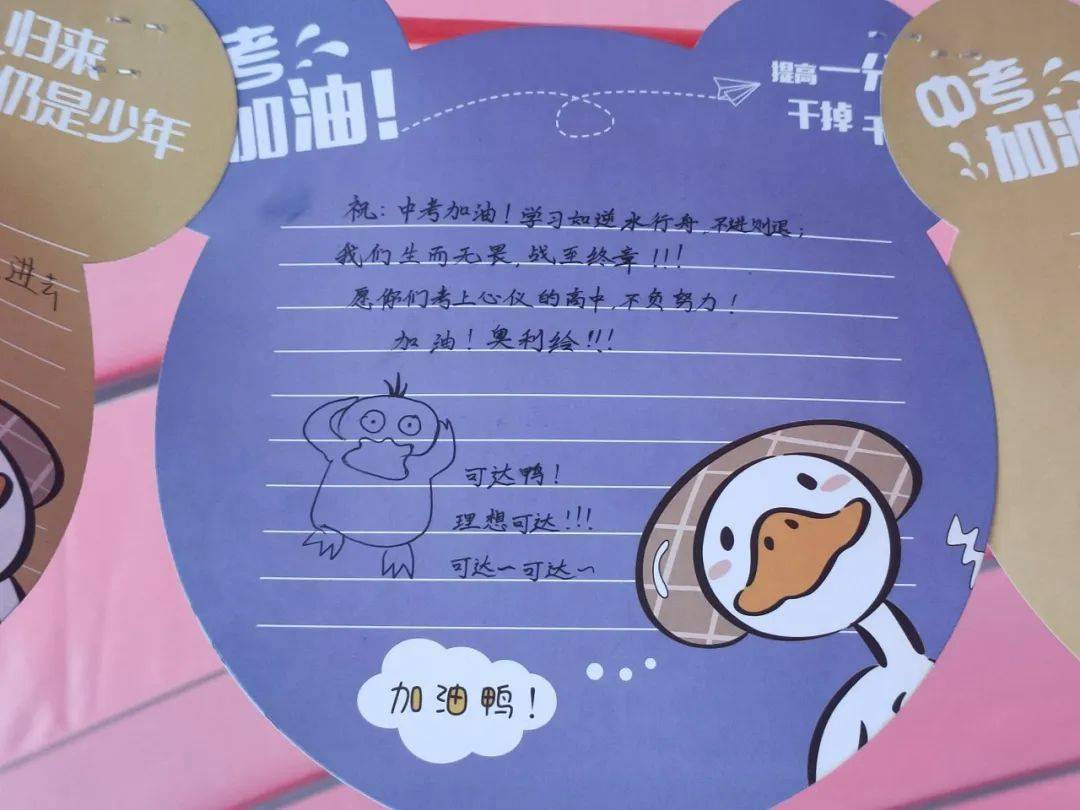 归来
仍是少年
进去
考
加油！
提高一分
干掉千
中考
加油
祝：中考加油！学习如逆水行舟，不进则退；
我们生而无畏，战至终章！！！
愿你们考上心仪的高中，不负努力！
加油！奥利绘！！！
可达鸭！
理想可达！！！
可达～可达～
加油鸭！